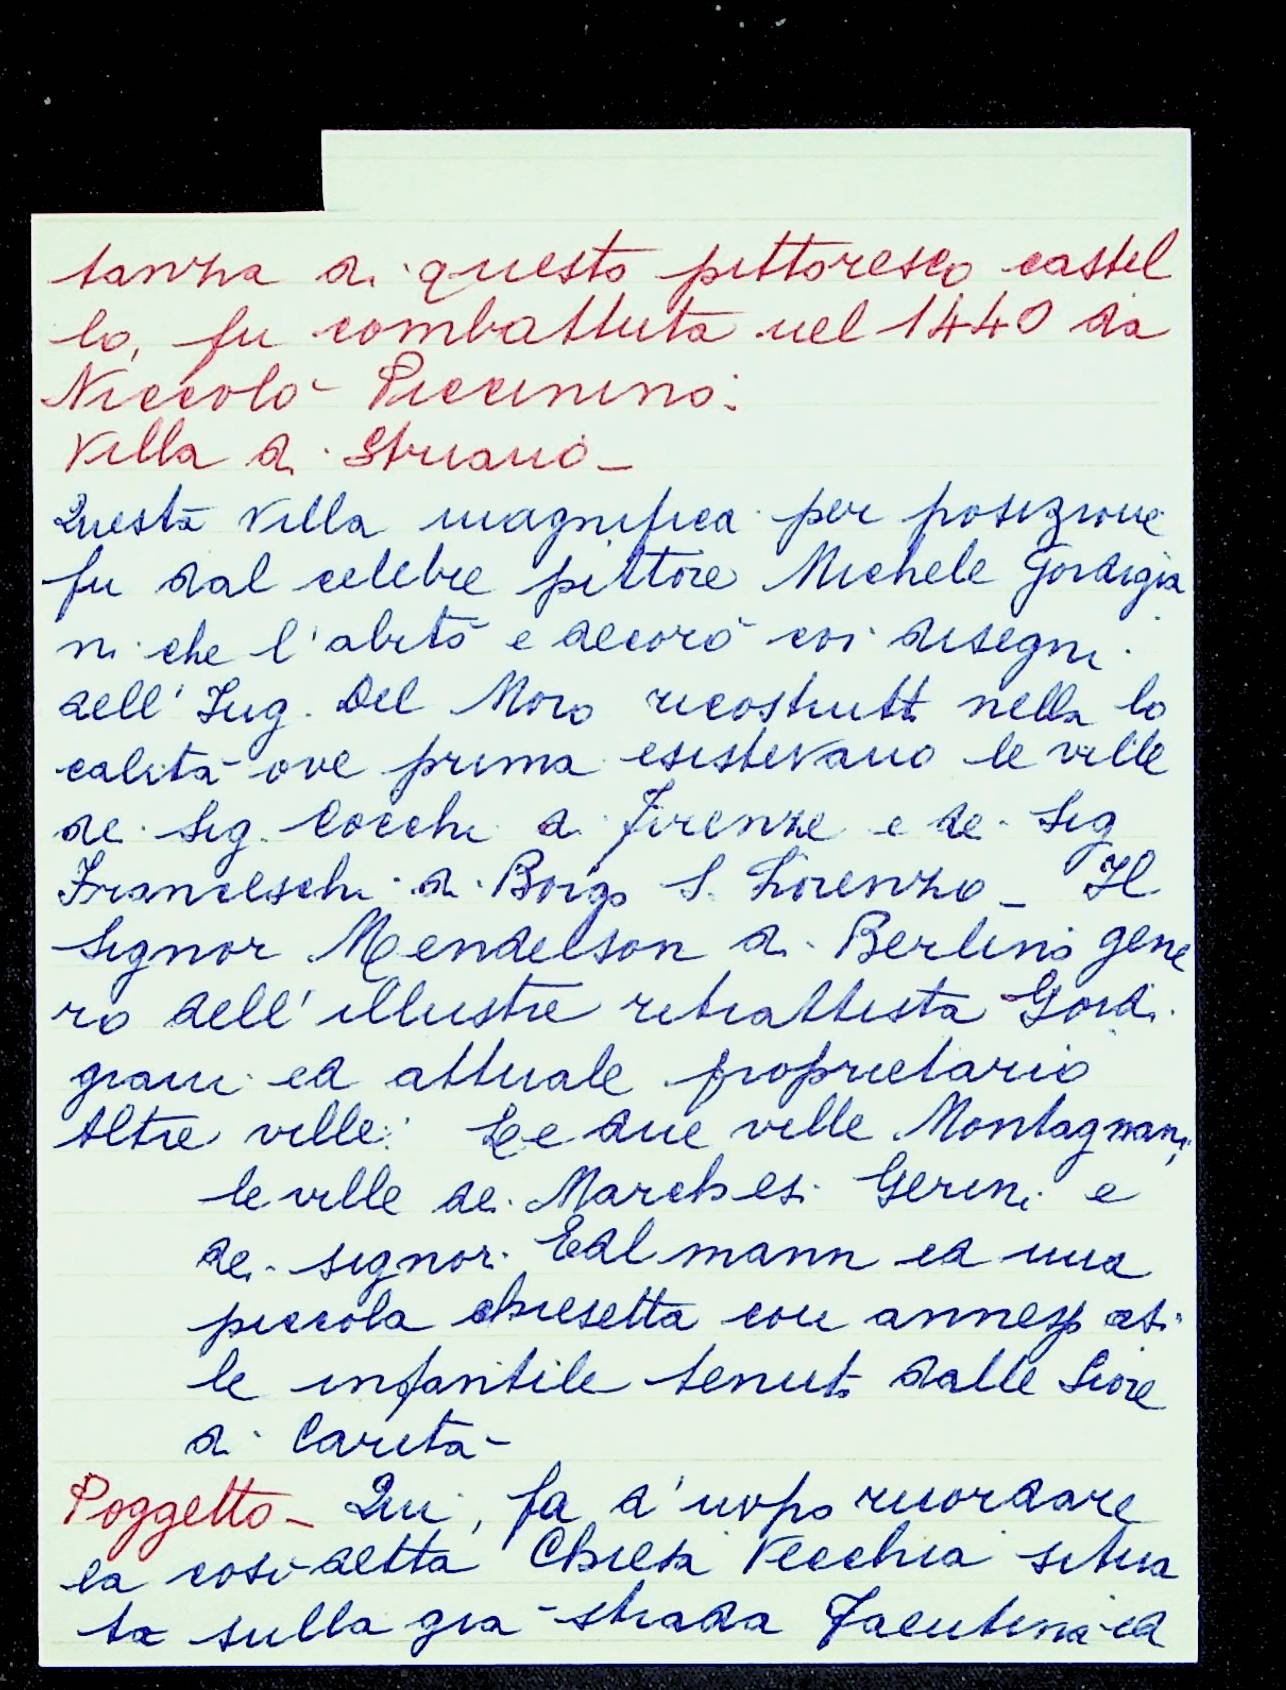 tanza di questo pittoresco castel
lo, fu combattuta nel 1440 da
Niccolò Piccinino.
Villa di Striano -
Questa Villa magnifica per posizione
fu dal celebre pittore Michele Gordigia
ni che l'abitò e decorò coi disegni
dell'Ing. Del Moro ricostrutt nella lo
calità ove prima esistevano le ville
dei Sig. Cocchi di Firenze e dei Sig
Franceschi di Borgo S. Lorenzo - Il
Signor Mendelson di Berlino gene
ro dell'illustre ritrattista Gordi
giani ed attuale proprietario
Altre ville: Le due ville Montagnani,
le ville dei Marchesi Gerini e
dei signori Edlmann ed una
piccola chiesetta con annesso asi
le infantile tenuto dalle Suore
di Carità -
Poggetto - Qui, fa d'uopo ricordare
la così detta Chiesa Vecchia situa
ta sulla già strada Faentina ed